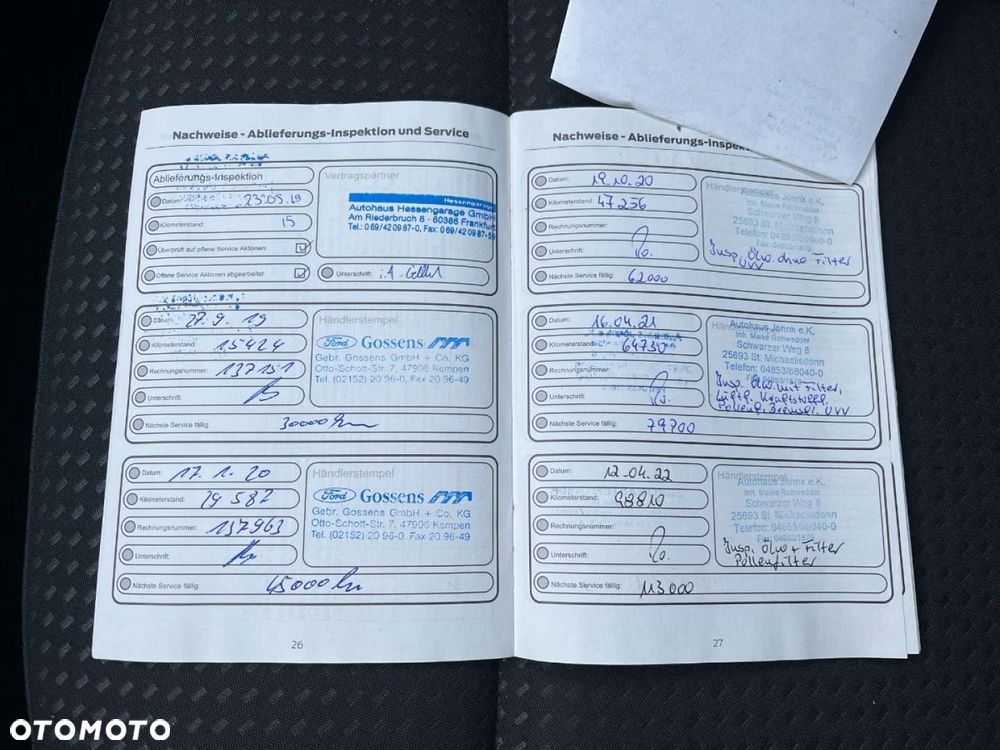 Nachweise - Ablieferungs-Inspektion und Service
Ablieferungs-Inspektion
Datum: 23.05.19
Kilometerstand: 15
Überprüft auf offene Service Aktionen:
Offene Service Aktionen abgearbeitet:
Vertragspartner
Autohaus Hessengarage GmbH
Am Riederbruch 8 · 60386 Frankfurt
Tel.: 0 69/42 09 87-0, Fax: 0 69/42 09 87-59
Unterschrift:
Datum: 27.9.19
Kilometerstand: 15424
Rechnungsnummer: 137151
Unterschrift:
Nächste Service fällig: 30000 km
Händlerstempel
Ford Gossens
Gebr. Gossens GmbH + Co. KG
Otto-Schott-Str. 7, 47906 Kempen
Tel. (02152) 20 96-0, Fax 20 96-49
Datum: 17.1.20
Kilometerstand: 29582
Rechnungsnummer: 137963
Unterschrift:
Nächste Service fällig: 45000 km
Händlerstempel
Ford Gossens
Gebr. Gossens GmbH + Co. KG
Otto-Schott-Str. 7, 47906 Kempen
Tel. (02152) 20 96-0, Fax 20 96-49
26
Nachweise - Ablieferungs-Inspek
Datum: 19.10.20
Kilometerstand: 47256
Rechnungsnummer:
Unterschrift:
Nächste Service fällig: 62000
Händlerstempel
Autohaus Johnk e.K.
Inh. Maike Rohwedder
Schwarzer Weg 8
25693 St. Michaelisdonn
Telefon: 04853/88040-0
Fax: 04853/1879
Insp. Ölw. ohne Filter
UVV
Datum: 16.04.21
Kilometerstand: 64730
Rechnungsnummer:
Unterschrift:
Nächste Service fällig: 79700
Händlerstempel
Autohaus Johnk e.K.
Inh. Maike Rohwedder
Schwarzer Weg 8
25693 St. Michaelisdonn
Telefon: 04853/88040-0
Insp. Ölw. mit Filter,
Luftf. Kraftstofff.
Pollenf. Bremsfl. UVV
Datum: 12.04.22
Kilometerstand: 98810
Rechnungsnummer:
Unterschrift:
Nächste Service fällig: 113000
Händlerstempel
Autohaus Johnk e.K.
Inh. Maike Rohwedder
Schwarzer Weg 8
25693 St. Michaelisdonn
Telefon: 04853/88040-0
Fax: 04853/1879
Insp. Ölw + Filter
Pollenfilter
27
OTOMOTO